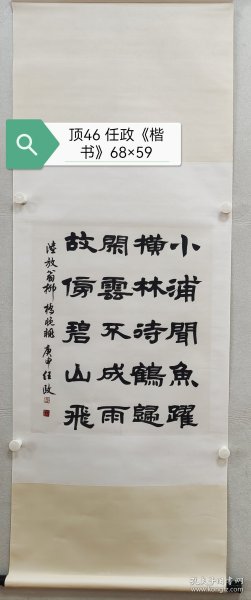 顶46 任政《楷
书》68×59
小浦聞魚躍
橫林待鶴歸
閑雲不成雨
故傍碧山飛
陸放翁柳橋晚眺 庚申任政
孔夫子旧书网
www.kongfz.com